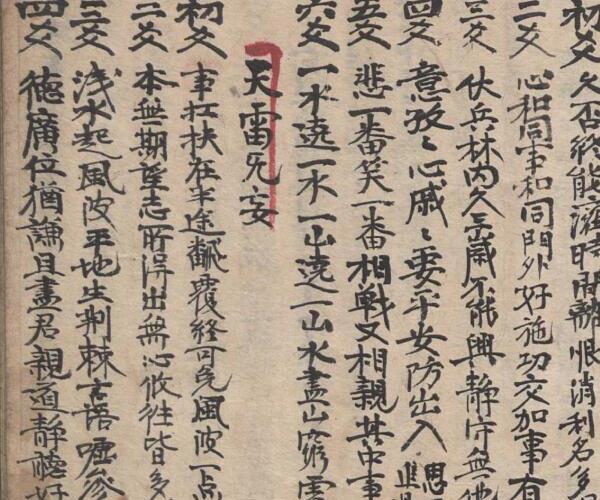 初爻 久否終能濟時間難恨消利名多
二爻 心和同事和同門外好施功交加事有
三爻 伏兵林内久三歳不能興静守無
四爻 意孜〻心戚〻要平安防出入
五爻 悲一番笑一番相戦又相親其中事
六爻 一水遶一水一山遶一山水盡山窮雲
天雷旡妄
初爻 事扛扶在半途翻覆終可免風波一点
二爻 本無期望志所得出無心攸往皆多
三爻 浅水起風波平地生荆棘言語
四爻 德廣位猶謙且盡君親道静